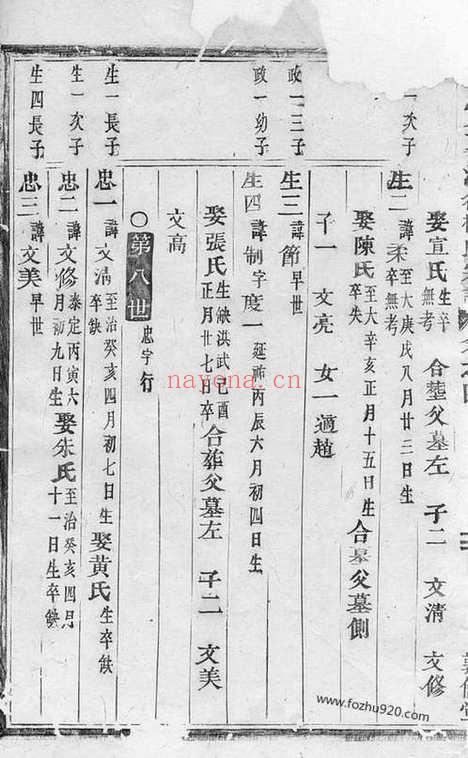 娶宣氏生辛卒無考合塟父墓左 子二 文清 文修
一次子
生二諱柔至大庚戌八月廿三日生卒無考
娶陳氏至大辛亥正月十五日生卒失合墓父墓側
子一 文亮 女一適趙
政一三子
生三諱節早世
政一幼子
生四諱制字度一延祐丙辰六月初四日生
娶張氏生缺洪武己酉正月廿七日卒合葬父墓左 子二 文美
文高
○第八世忠字行
生一長子
忠一諱文清至治癸亥四月初七日生卒缺娶黄氏生卒缺
生一次子
忠二諱文修泰定丙寅六月初九日生娶朱氏至治癸亥四月十一日生卒缺
生四長子
忠三諱文美早世
nayona.cn
www.fozhu920.com